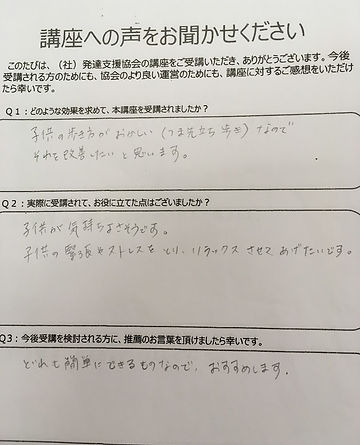 講座への声をお聞かせください
このたびは、（社）発達支援協会の講座をご受講いただき、ありがとうございます。今後
受講される方のためにも、協会のより良い運営のためにも、講座に対するご感想をいただけ
たら幸いです。
Q１：どのような効果を求めて、本講座を受講されましたか？
子供の歩き方がおかしい（つま先立ち歩き）なので
それを改善したいと思います。
Q２：実際に受講されて、お役に立てた点はございましたか？
子供が気持ちよさそうです。
子供の緊張やストレスをとり、リラックスさせてあげたいです。
Q3：今後受講を検討される方に、推薦のお言葉を頂けましたら幸いです。
どれも簡単にできるものなので、おすすめします。